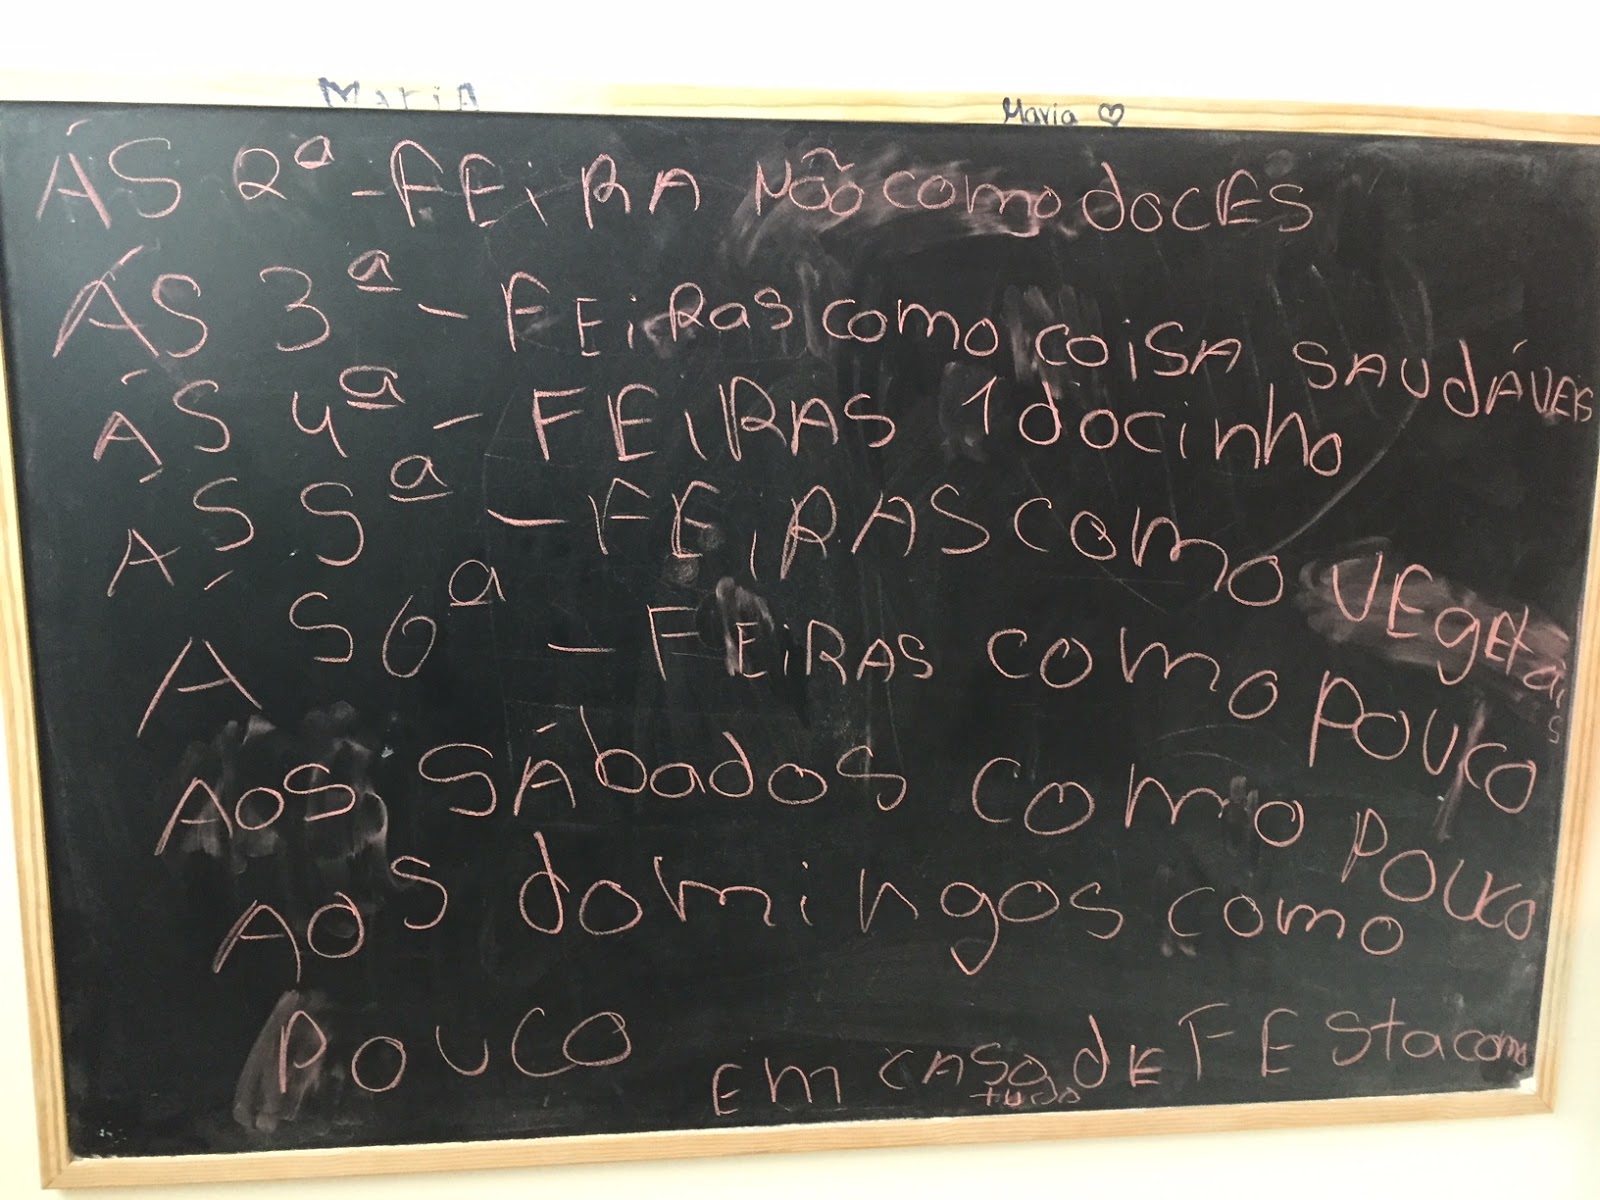 MariA
Maria ♡
ÁS 2ª-FEiRA Não como docES
ÁS 3ª-FEiRas como coisA SAUdÁVEis
ÁS 4ª-FEiRAS 1 docinho
ÁS 5ª-FEiRAS como VEgEtais
ÁS 6ª-FEiRAS como pouco
AoS SÁbados como pouco
AoS domingos como
pouco Em cASo dE FEStacomo
tudo